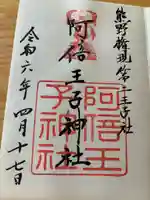 熊野権現第二王子社
阿倍王子神社
令和六年四月十七日
阿倍王
子神社